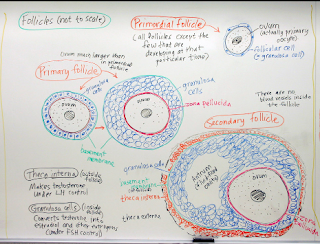 Follicles (not to scale)
Primordial follicle
(all follicles except the
few that are
developing at that
particular time)
ovum
(actually primary
oocyte)
follicular cell
(a granulosa cell)
Ovum much larger than
in primordial
follicle
Primary follicle
granulosa
cells
ovum
ovum
granulosa
cells
zona pellucida
basement
membrane
There are no
blood vessels inside
the follicle
Secondary follicle
Theca interna (outside
follicle)
Makes testosterone
under LH control
Granulosa cells (inside
follicle)
Converts testosterone into
estradiol and other estrogens
(under FSH control)
granulosa cells
basement
membrane
theca interna
theca externa
Antrum
(fluid-filled
cavity)
ovum
zona
pellucida